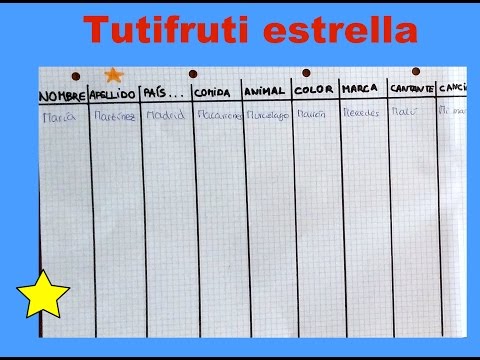 Tutifruti estrella
NOMBRE APELLIDO PAÍS... COMIDA ANIMAL COLOR MARCA CANTANTE CANCI
María Martínez Madrid Macarrones Murcielago Marrón Mercedes Malú Mi mar